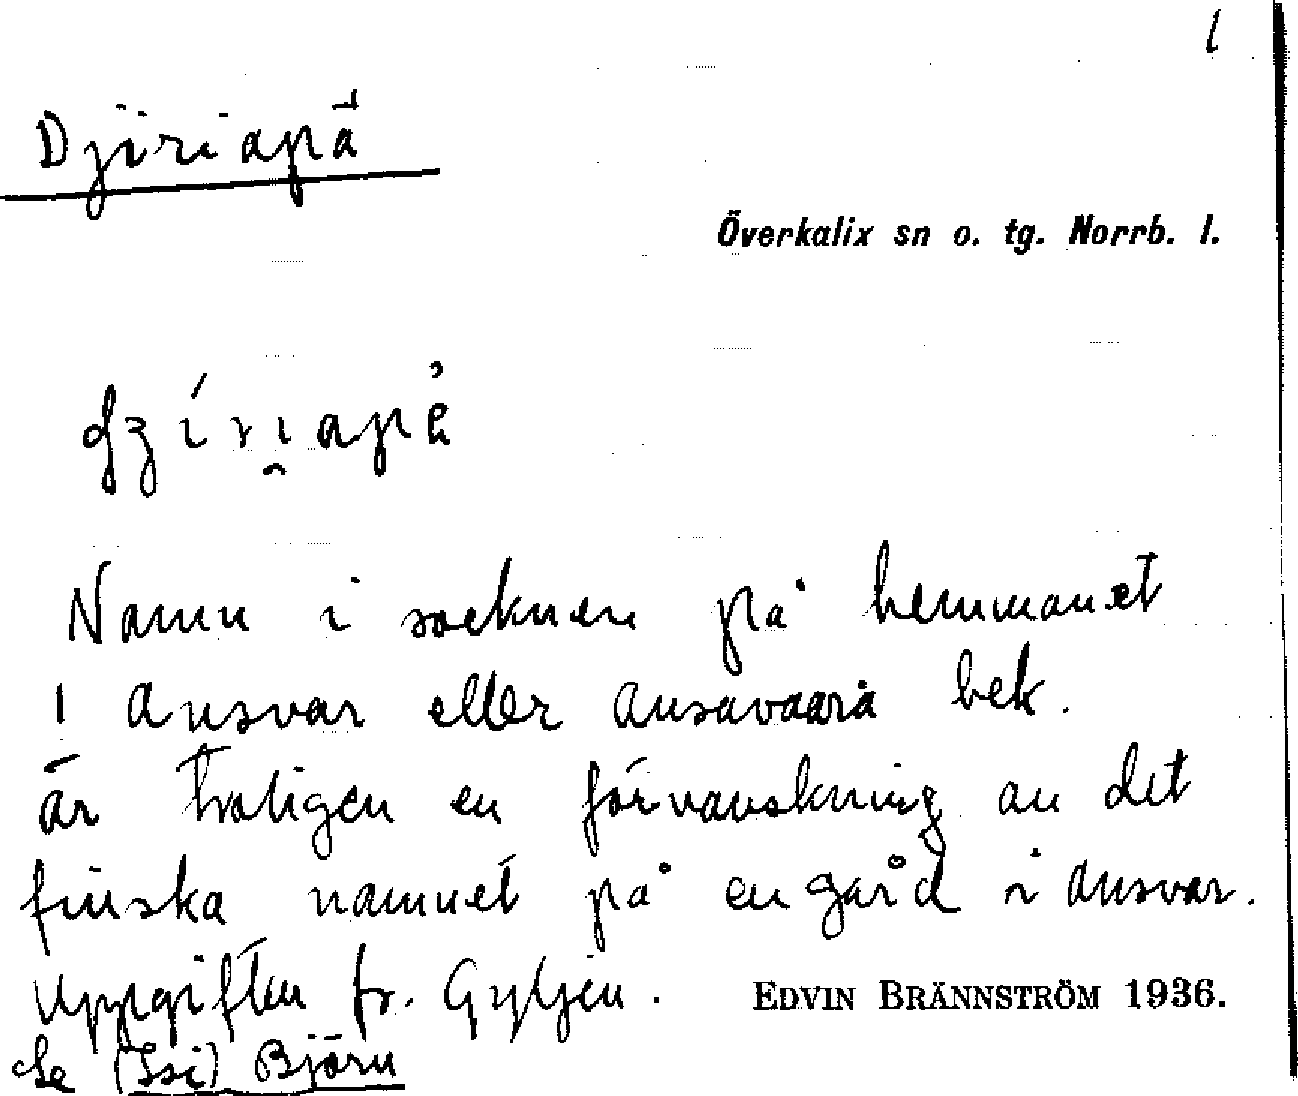 1
Djiriapä
Överkalix sn o. tg. Norrb. l.
Namn i socknen på hemmanet
1 Ansvar eller Ansavaara bek.
är troligen en förvanskning av det
finska namnet på en gård i Ansvar.
Uppgiften fr. Gyljen.
EDVIN BRÄNNSTRÖM 1936.
Se (Isi) Björn